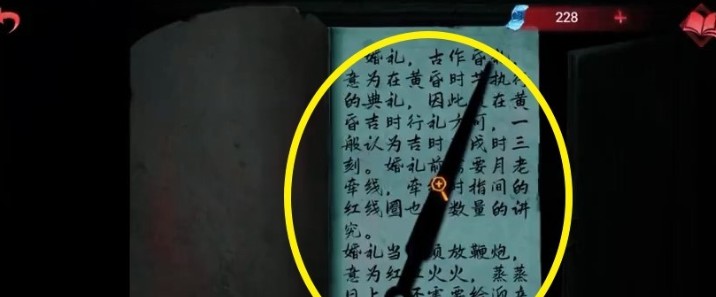 228
婚礼，古作昏礼，
意为在黄昏时 执行
的典礼，因此 在黄
昏吉时行礼方可，一
般认为吉时 戌时三
刻。婚礼前需要月老
牵线，牵 时指间的
红线圈也 数量的讲
究。
婚礼当 须放鞭炮，
意为红 火火，蒸蒸
日上